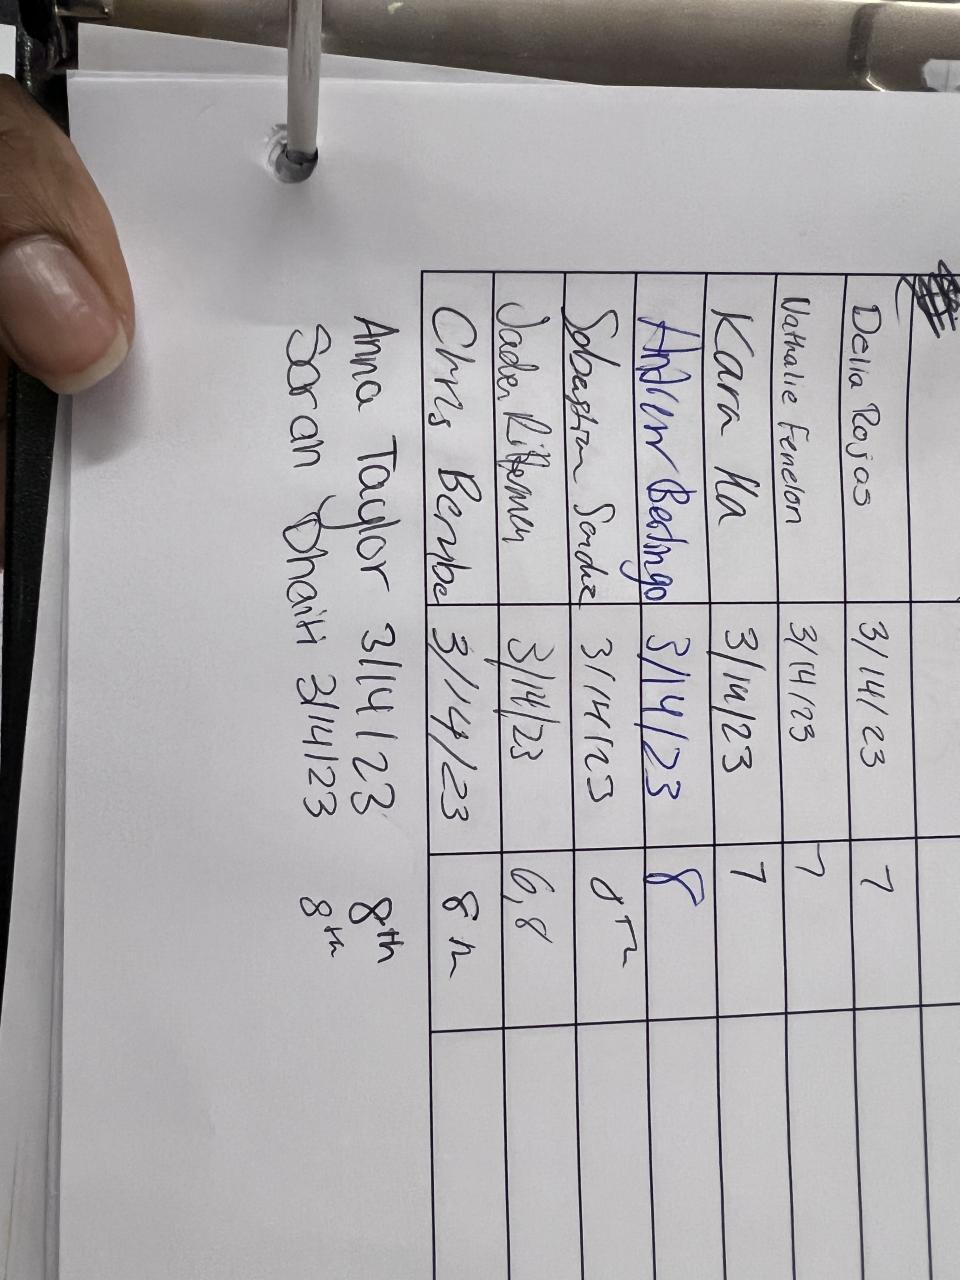 Delia Rojas 3/14/23 7
Nathalie Fenelon 3/14/23 7
Kara Ha 3/14/23 7
Andrew 3/14/23 8
Sebastian 3/14/23 8th
Jaden 3/14/23 6,8
Chris Berube 3/14/23 8th
Anna Taylor 3/14/23 8th
Saran Dhaiti 3/14/23 8th